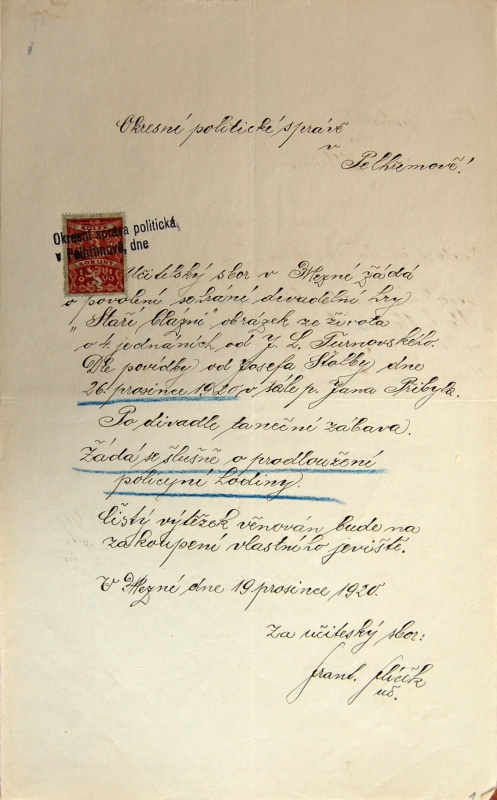 Okresní politické správě
v
Pelhřimově!
Okresní správa politická
v Pelhřimově, dne
KOLEK
Učitelský sbor v Mezné žádá
o povolení sehrání divadelní hry
"Staří blázni" obrázek ze života
o 4. jednáních od J. L. Turnovského.
Dle povídky od Josefa Štolby dne
26. prosince 1920 v sále p. Jana Přibyla.
Po divadle taneční zábava.
Žádá se slušně o prodloužení
policejní hodiny.
Čistý výtěžek věnován bude na
zakoupení vlastního jeviště.
V Mezné dne 19 prosince 1920.
Za učiteský sbor:
Frant.
uč.